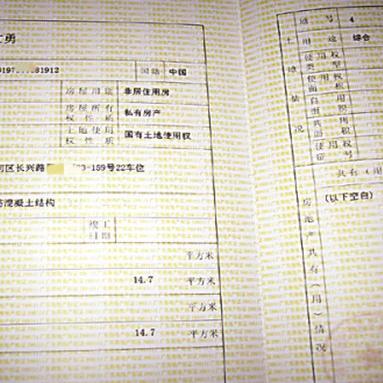 勇
0197....81912 国籍 中国
房屋用途 非居住用房
房屋所有权性质 私有房产
土地使用权性质 国有土地使用权
区长兴路 -159号22车位
混凝土结构
竣工日期
平方米
14.7 平方米
平方米
14.7 平方米
土地情况
地号 4
用途 综合
使用权类型
使用权面积
自用面积
共有（用
（以下空白）
房地产共有（用）情况